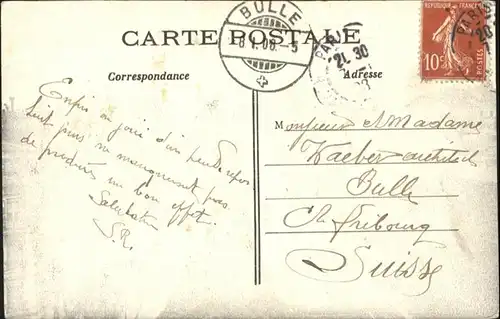 BULLE
8.I.08.-5
CARTE POSTALE
PARIS
21 30
RÉPUBLIQUE FRANÇAISE
10c
POSTES
Correspondance
Adresse
Enfin on joui d'un peu de repos
huit jours ne manqueront pas
de produire un bon effet.
Salutation
S.R.
Monsieur & Madame
Waeber architect
Bulle
Ct. fribourg
Suisse